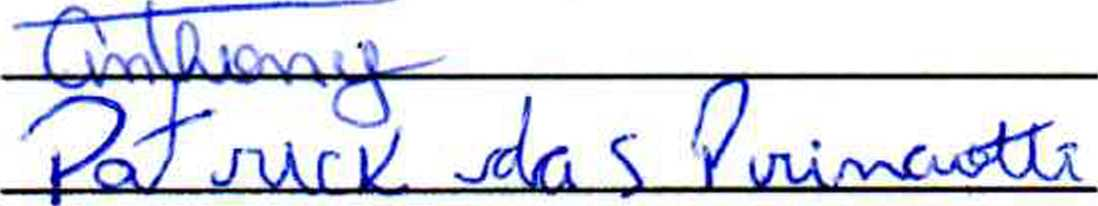 Anthony
Patrick das Princiotti